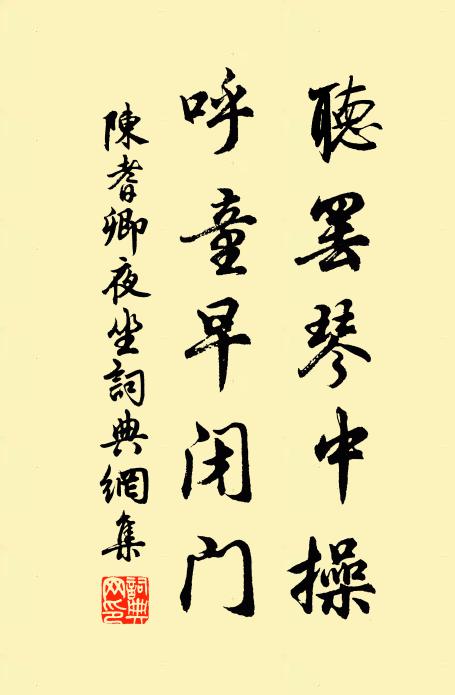 聽罢琴中操
呼童早闭门
陳耆卿夜坐詞典網集
詞典网印